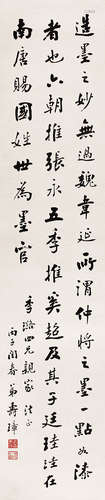 造墨之妙無過魏韋延所謂仲將之墨一點如漆
者也六朝推張永五季推奚超及其子廷珪廷在
南唐賜國姓世為墨官
季潞四兄親家法正
丙子閏春弟壽璋